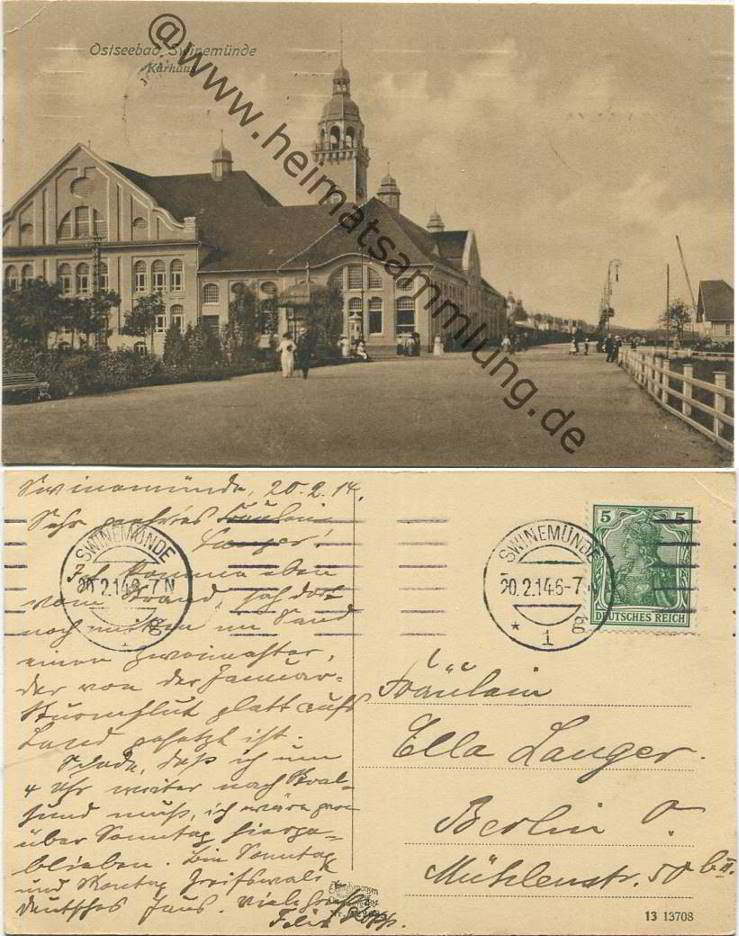 Ostseebad Swinemünde
Kurhaus
@www.heimatsammlung.de
Swinemünde, 20.2.14.
Sehr geehrtes Fräulein
Langer!
Ich komme eben
vom Strand, sah dort
noch mitten im Sand
einen Zweimaster,
der von der Januar-
Sturmflut glatt aufs
Land gesetzt ist.
Schade, daß ich um
4 Uhr weiter nach Stral-
sund muß, ich wäre gern
über Sonntag hierge-
blieben. Bin Sonntag
und Montag Greifswald
Deutsches Haus. Viele
Felix
SWINEMÜNDE
20.2.14.6-7 N
* 1 g
SWINEMÜNDE
20.2.14.6-7
* 1 g
5 5
DEUTSCHES REICH
Fräulein
Ella Langer.
Berlin O.
Mühlenstr. 50 b II.
13 13708